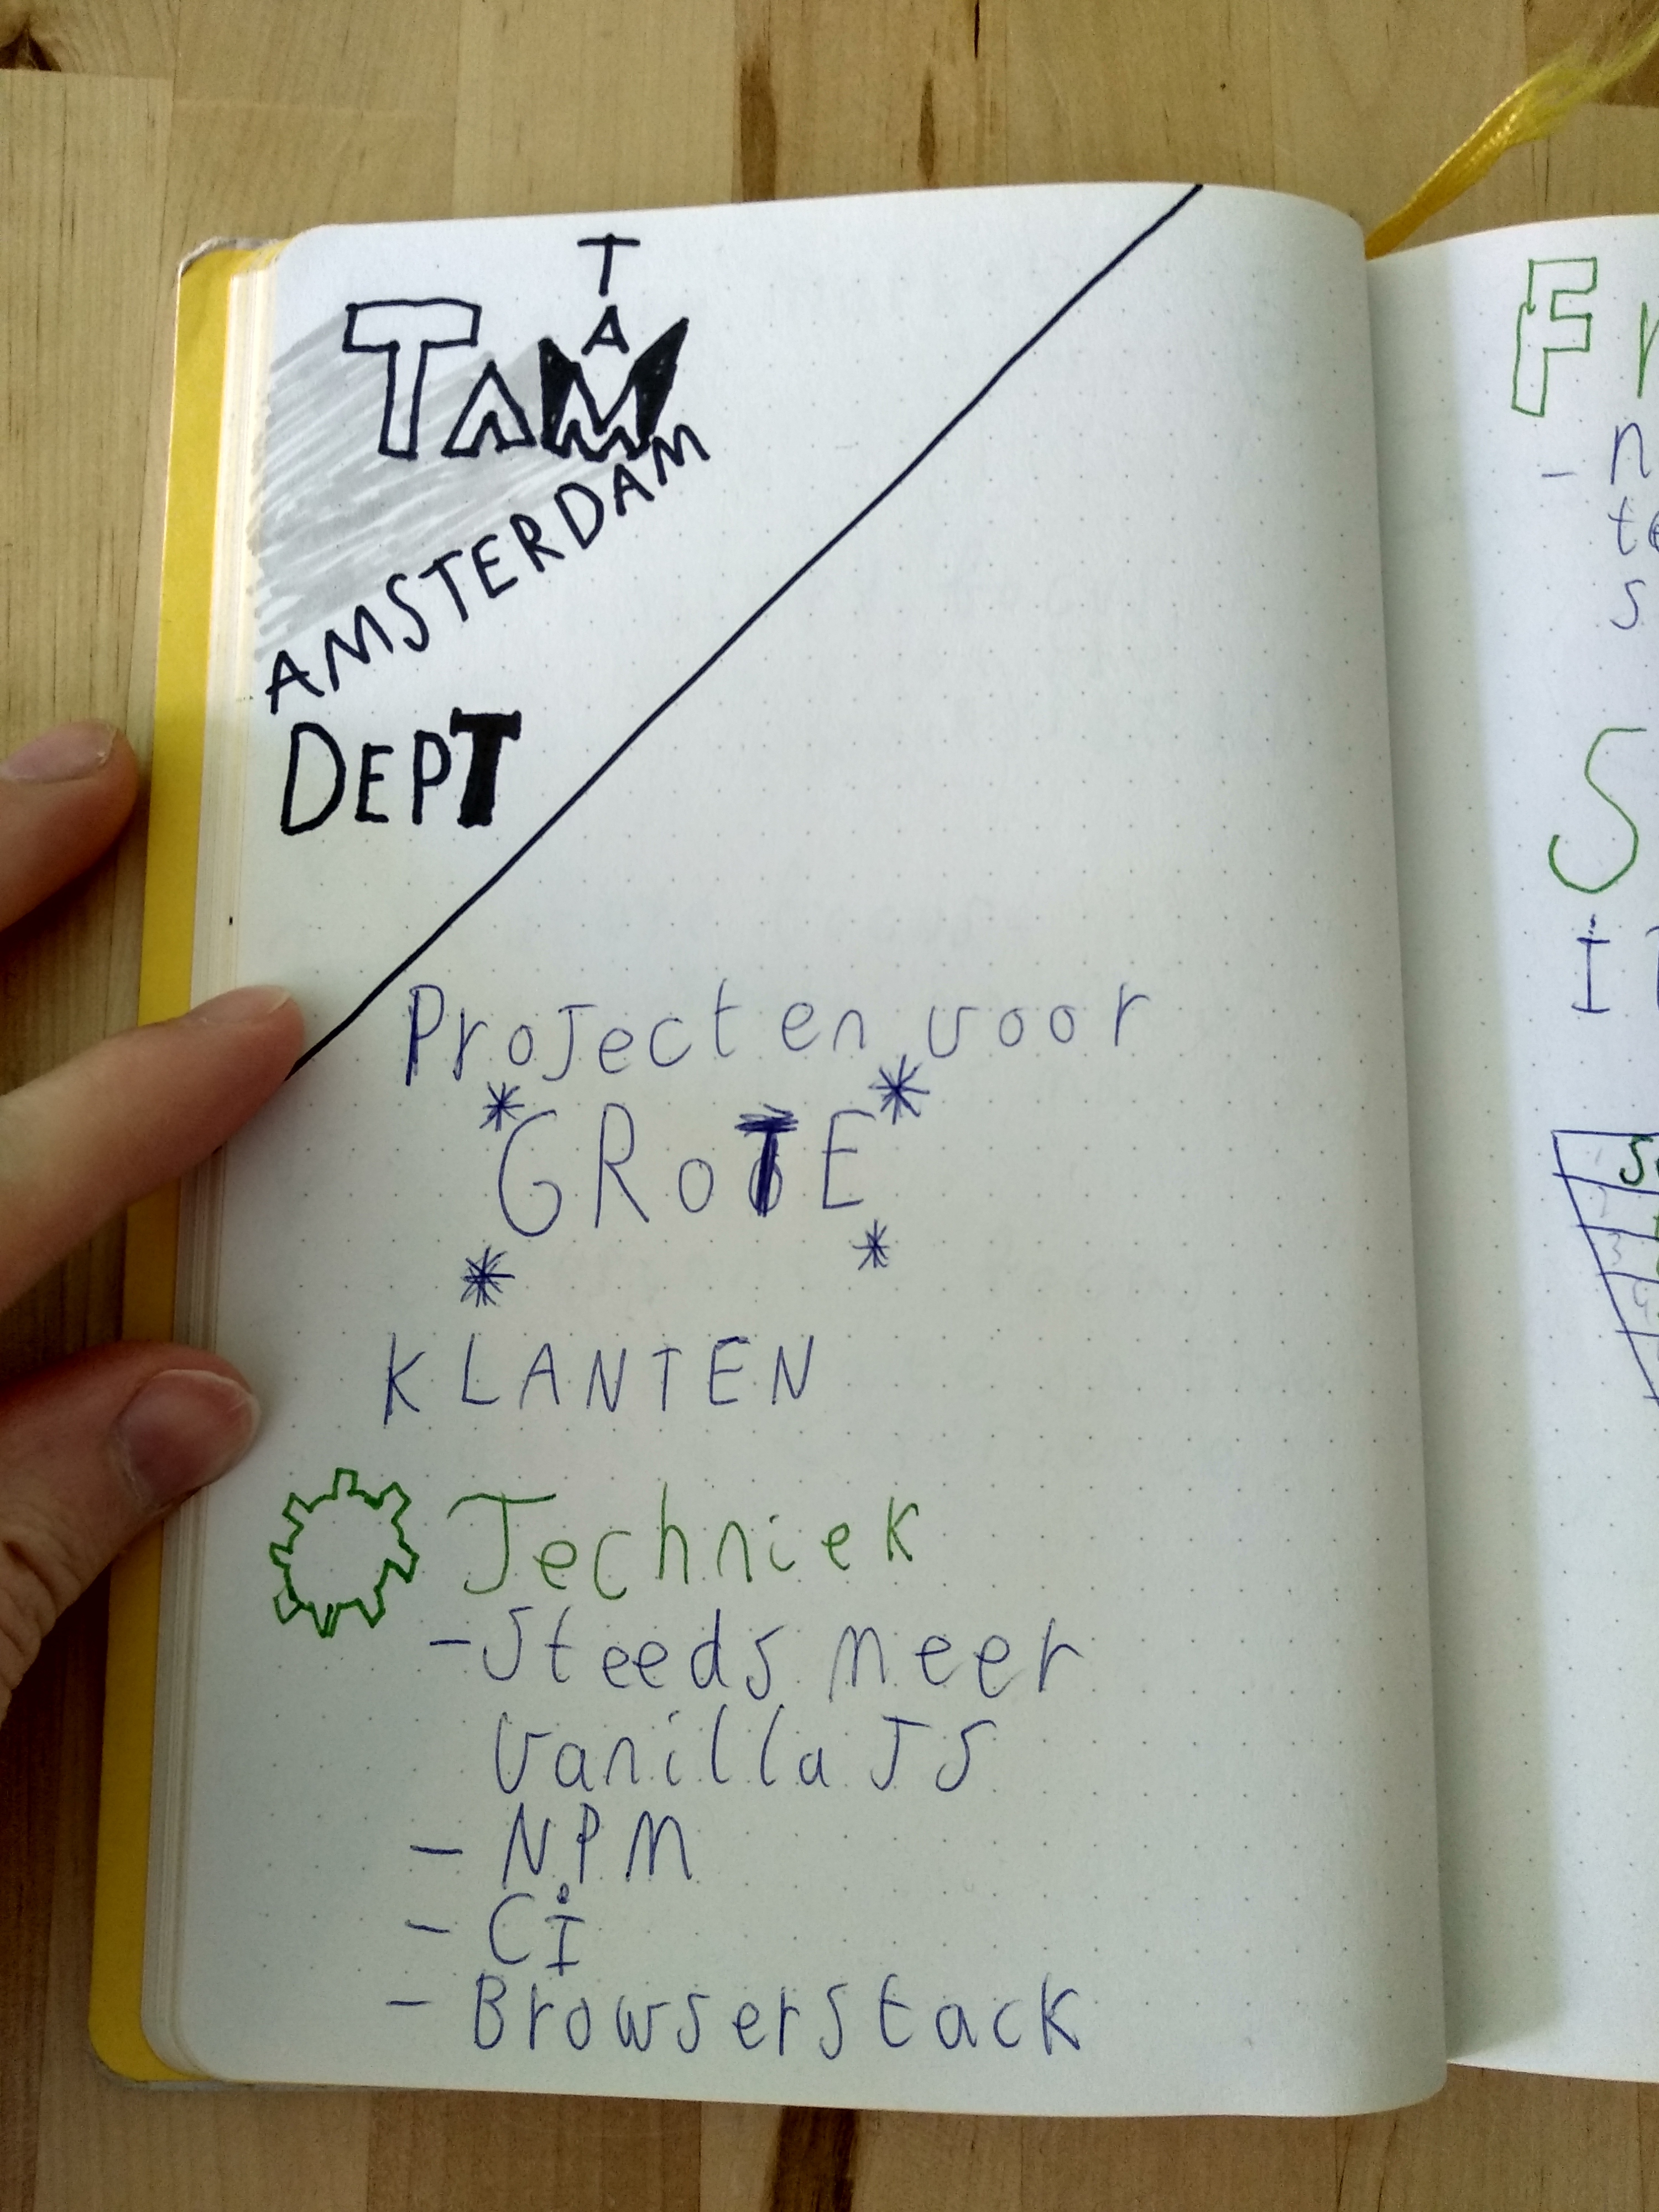 T
A
TAM
AMSTERDAM
DEPT
Projecten voor
*GROTE*
* *
KLANTEN
Techniek
- Steeds meer
Vanilla JS
- NPM
- CI
- Browserstack
F
- n
te
s
S
I